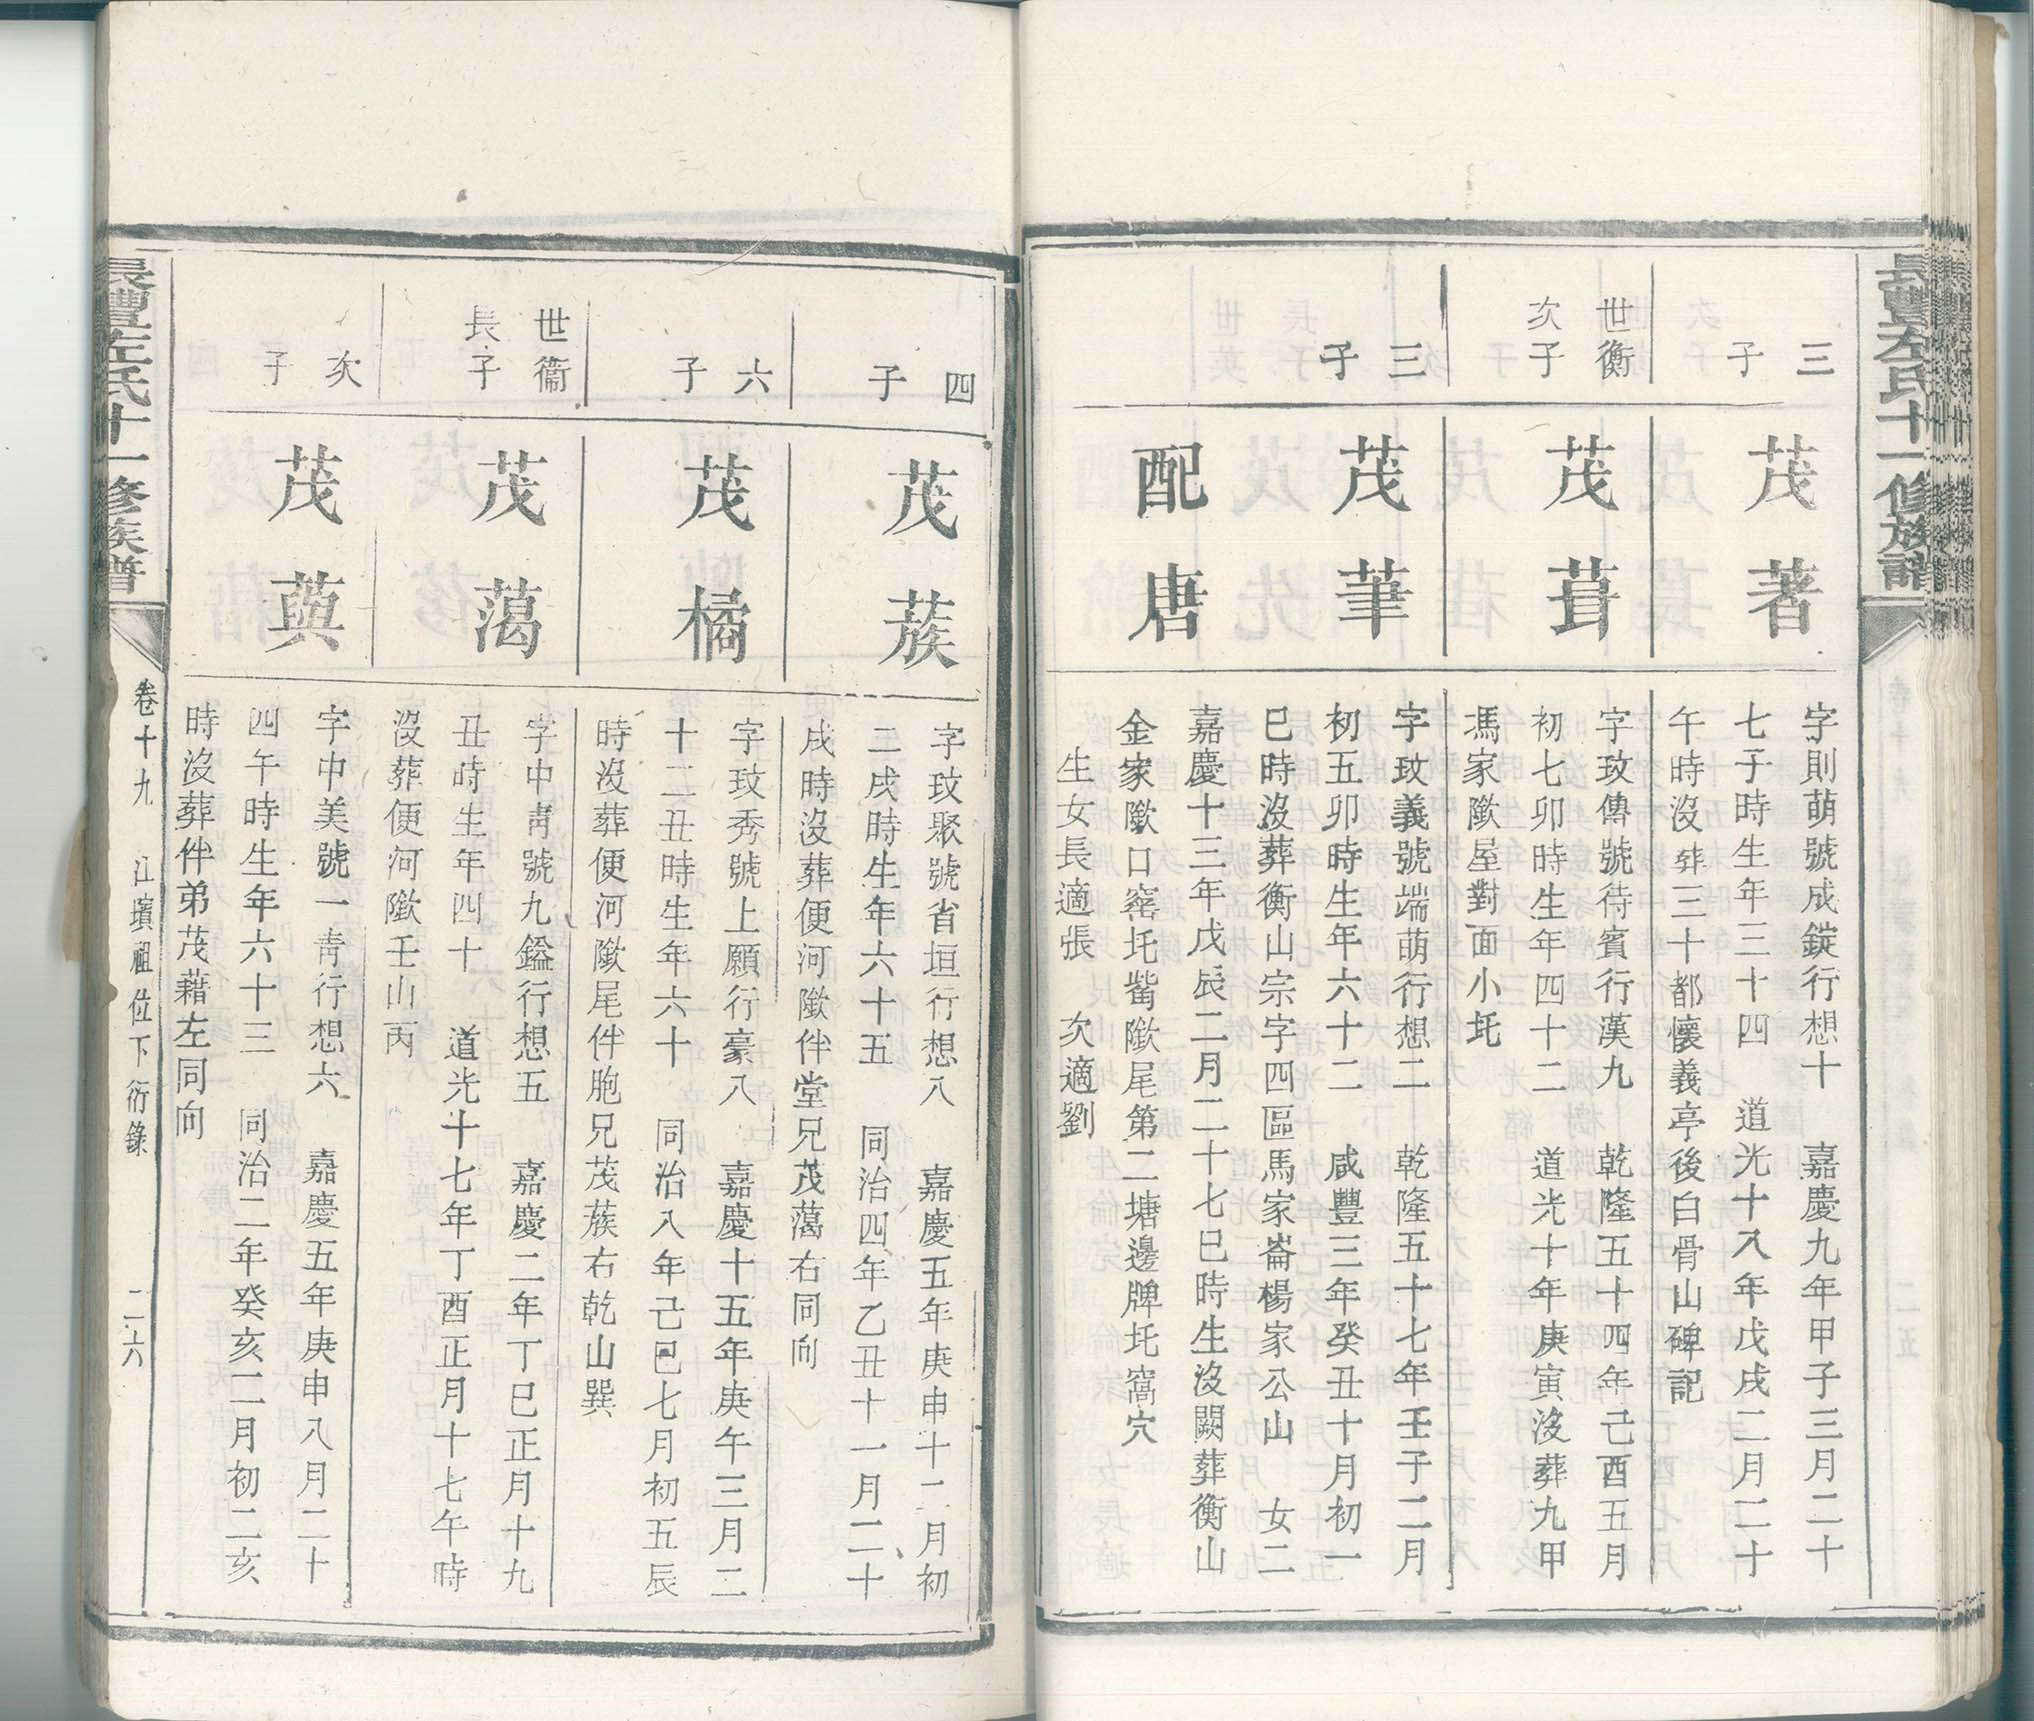 長豐左氏十一修族譜
三子
茂著
字則萌號成錠行想十　嘉慶九年甲子三月二十
七子時生年三十四　道光十八年戊戌二月二十
午時沒葬三十都懷義亭後白骨山碑記
世衡次子
茂葺
字玟傳號待賓行漢九　乾隆五十四年己酉五月
初七卯時生年四十二　道光十年庚寅沒葬九甲
馮家隞屋對面小圫
三子
茂茟
字玟義號端萌行想二　乾隆五十七年壬子二月
初五卯時生年六十二　咸豐三年癸丑十月初一
巳時沒葬衡山宗字四區馬家崙楊家公山　女二
配唐
嘉慶十三年戊辰二月二十七巳時生沒闕葬衡山
金家隞口窰圫觜隞尾第二塘邊牌圫窩穴
生女長適張　次適劉
四子
茂蔟
字玟聚號省垣行想八　嘉慶五年庚申十二月初
二戌時生年六十五　同治四年乙丑十一月二十
戌時沒葬便河隞伴堂兄茂藹右同向
六子
茂橘
字玟秀號上願行豪八　嘉慶十五年庚午三月二
十二丑時生年六十　同治八年己巳七月初五辰
時沒葬便河隞尾伴胞兄茂蔟右乾山巽
世衞長子
茂藹
字中靑號九鎰行想五　嘉慶二年丁巳正月十九
丑時生年四十　道光十七年丁酉正月十七午時
沒葬便河隞壬山丙
次子
茂藇
字中美號一靑行想六　嘉慶五年庚申八月二十
四午時生年六十三　同治二年癸亥二月初二亥
時沒葬伴弟茂藉左同向
長豐左氏十一修族譜
卷十九　江璸祖位下衍錄　二六